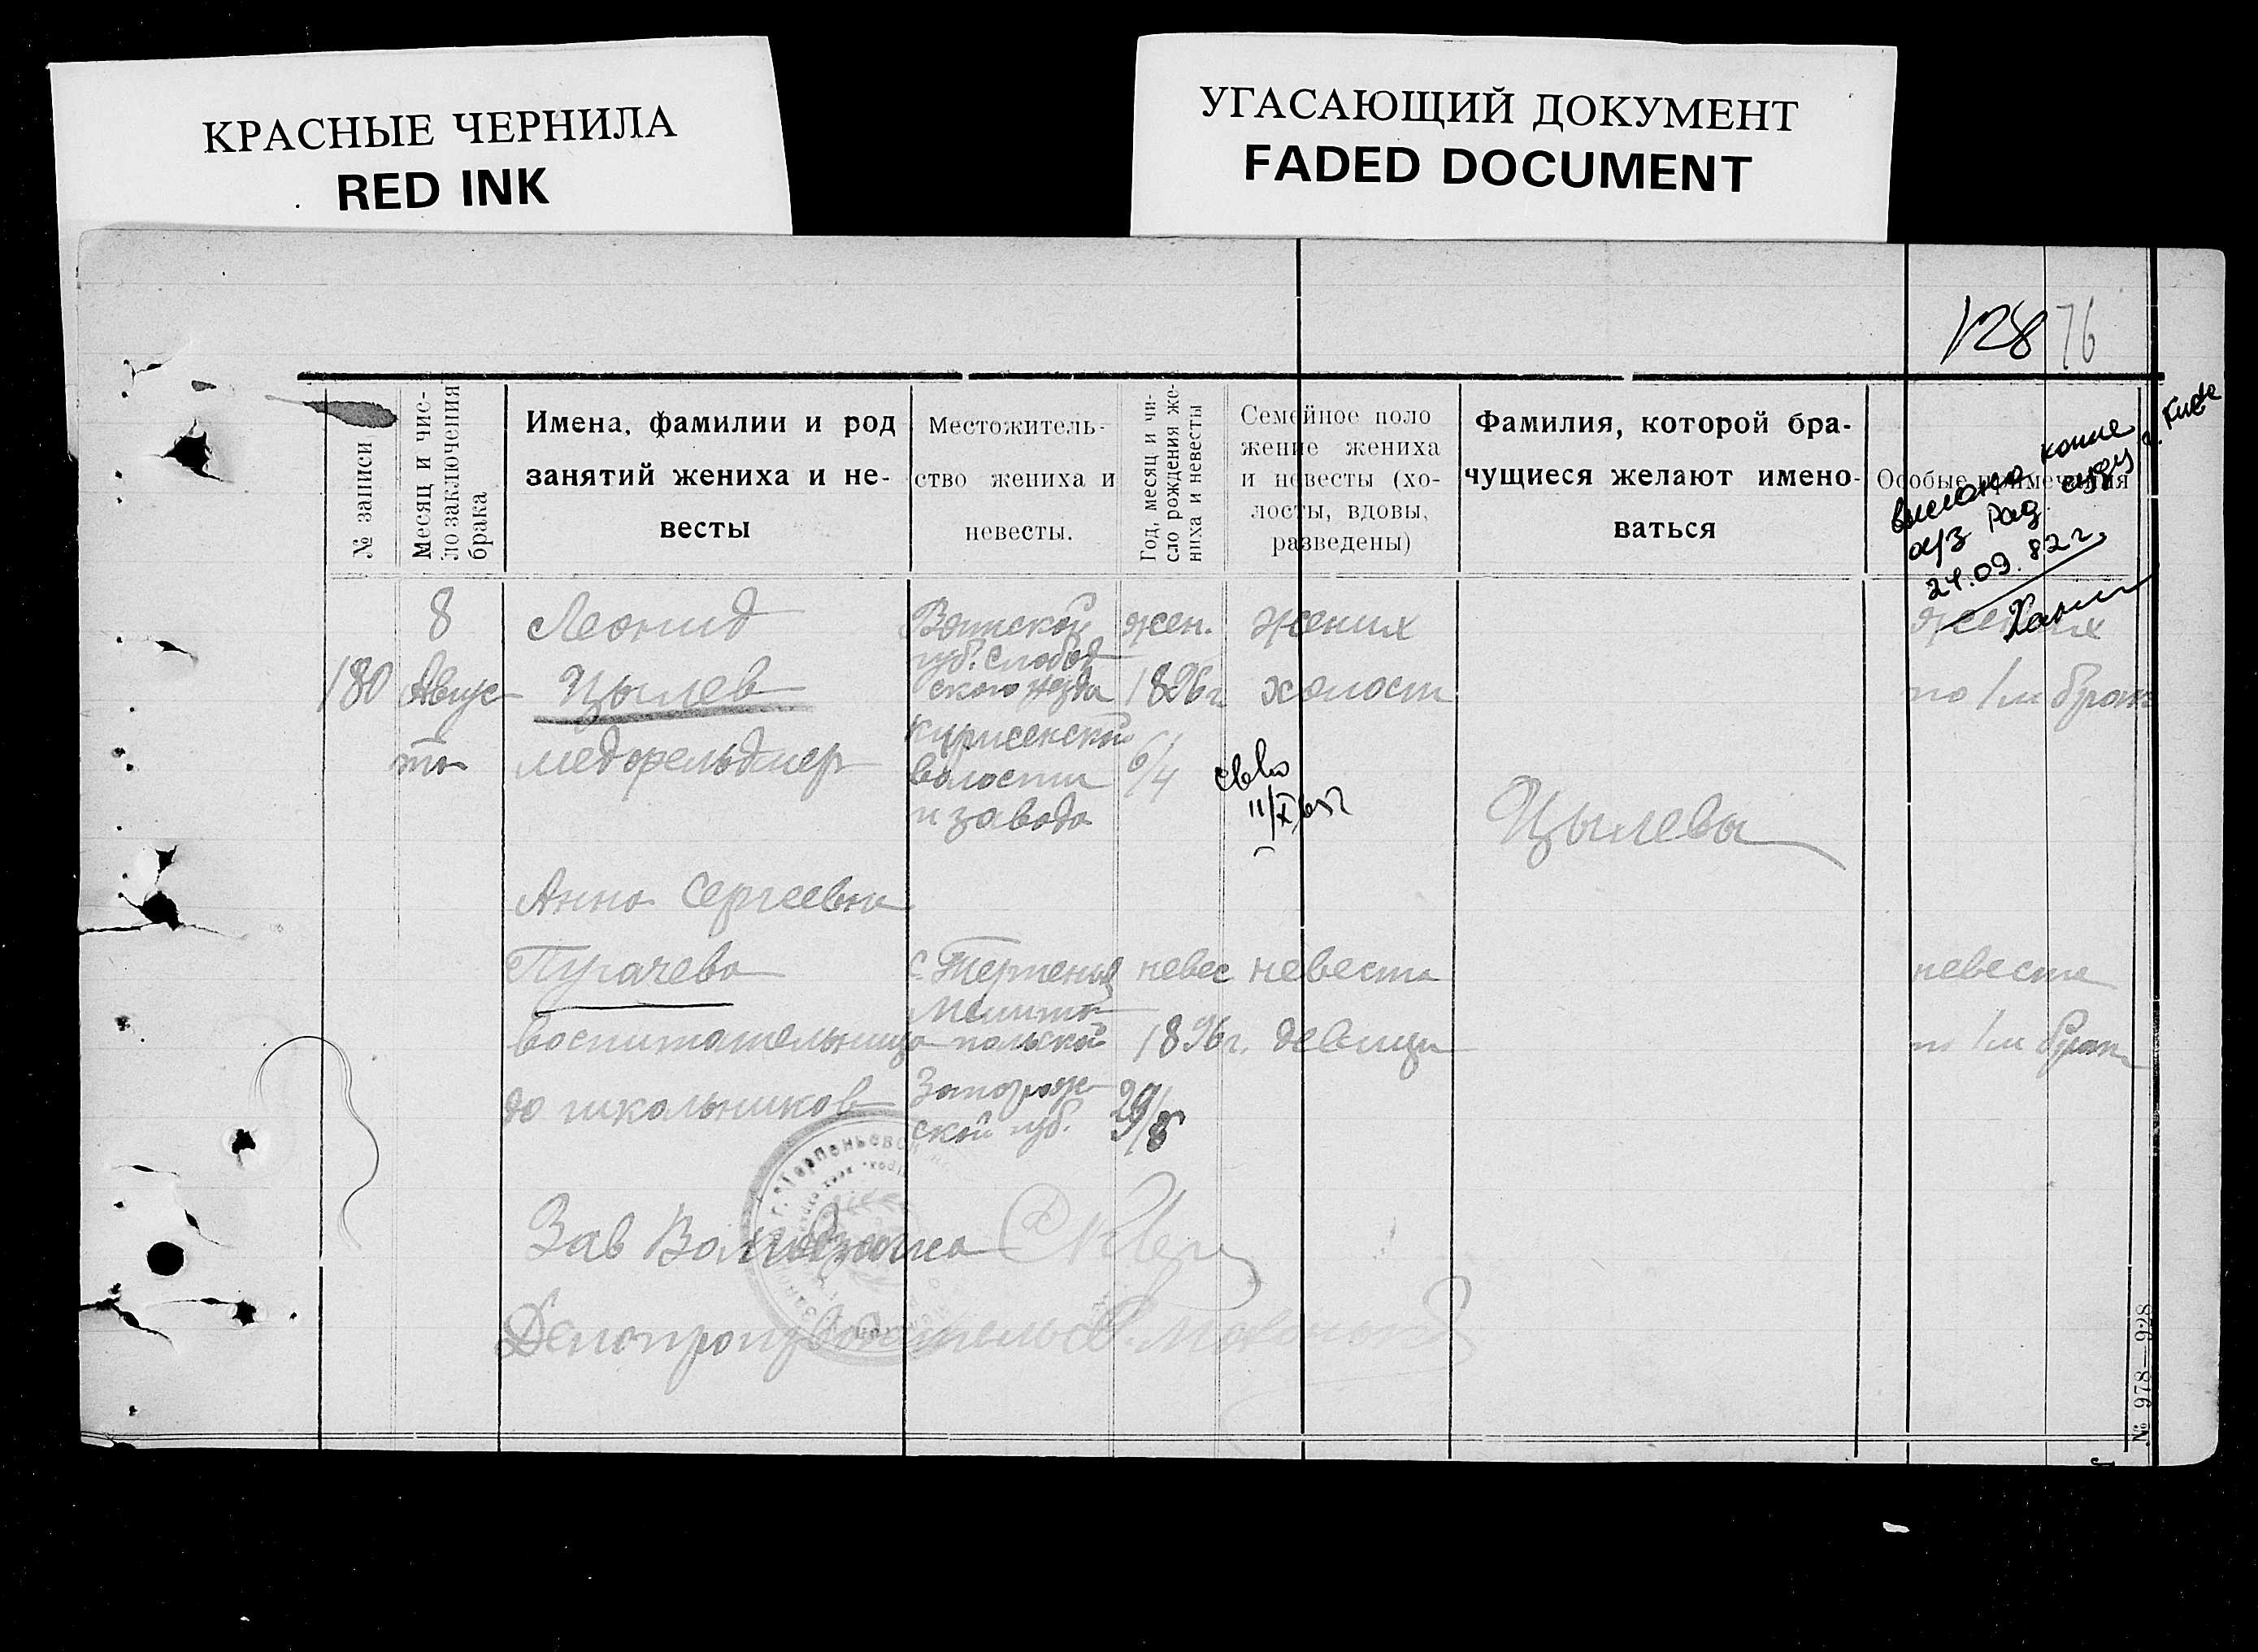 КРАСНЫЕ ЧЕРНИЛА
RED INK
УГАСАЮЩИЙ ДОКУМЕНТ
FADED DOCUMENT
128 76
№ записи
Месяц и чис-
ло заключения
брака
Имена, фамилии и род
занятий жениха и не-
весты
Местожитель-
ство жениха и
невесты.
Год, месяц и чи-
сло рождения же-
ниха и невесты
Семейное поло
жение жениха
и невесты (хо-
лосты, вдовы,
разведены)
Фамилия, которой бра-
чущиеся желают имено-
ваться
Особые примечания
24.09.82 г.
180
8
Авгус
та
Леонид
Цылев
медфельдшер
Вятской
губ. Слобод
ского уезда
волости
и завода
жен.
1896 г.
6/4
жених
холост
Цылевы
жених
по 1м брак
Анна Сергеевна
Пугачева
воспитательница
до школьников
с. Терпенье
Мелито
польской
Запорож
ской губ.
невес
1896 г.
29/8
невеста
девица
невеста
по 1м брак
Зав
Делопроизводитель
№ 978—928